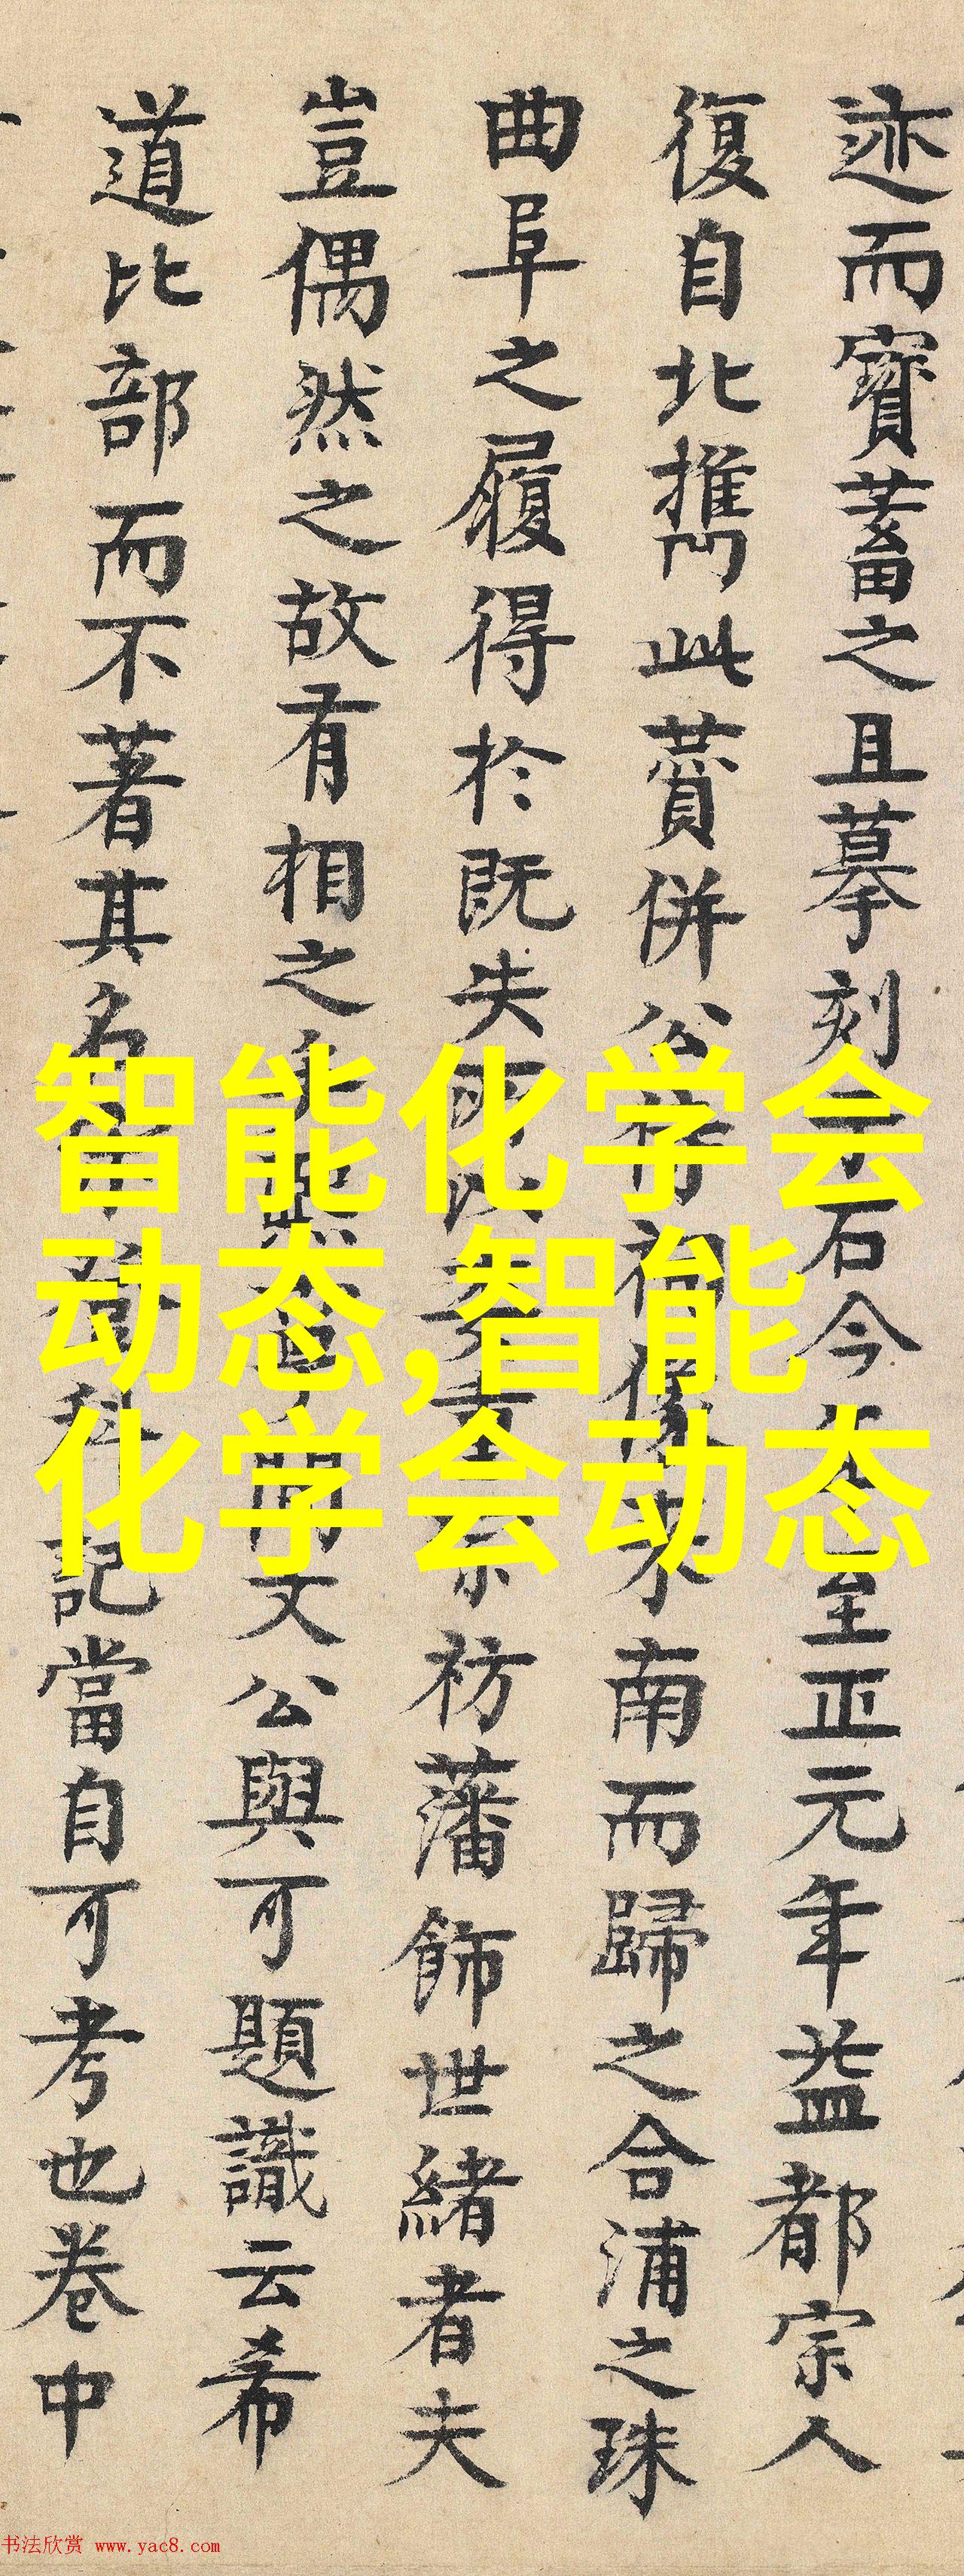 迹而寶蓄之且摹刻石今至正元年益都宗人
復自北攜此賛併公祠像来南而歸之合浦之珠
曲阜之履得於既失祊藩飾世緒者夫
豈偶然之故有相之文公與可題識云希
道比部而不著其名科記當自可考也卷中
智能化学会
动态,智能
化学会动态
书法欣赏 www.yac8.com